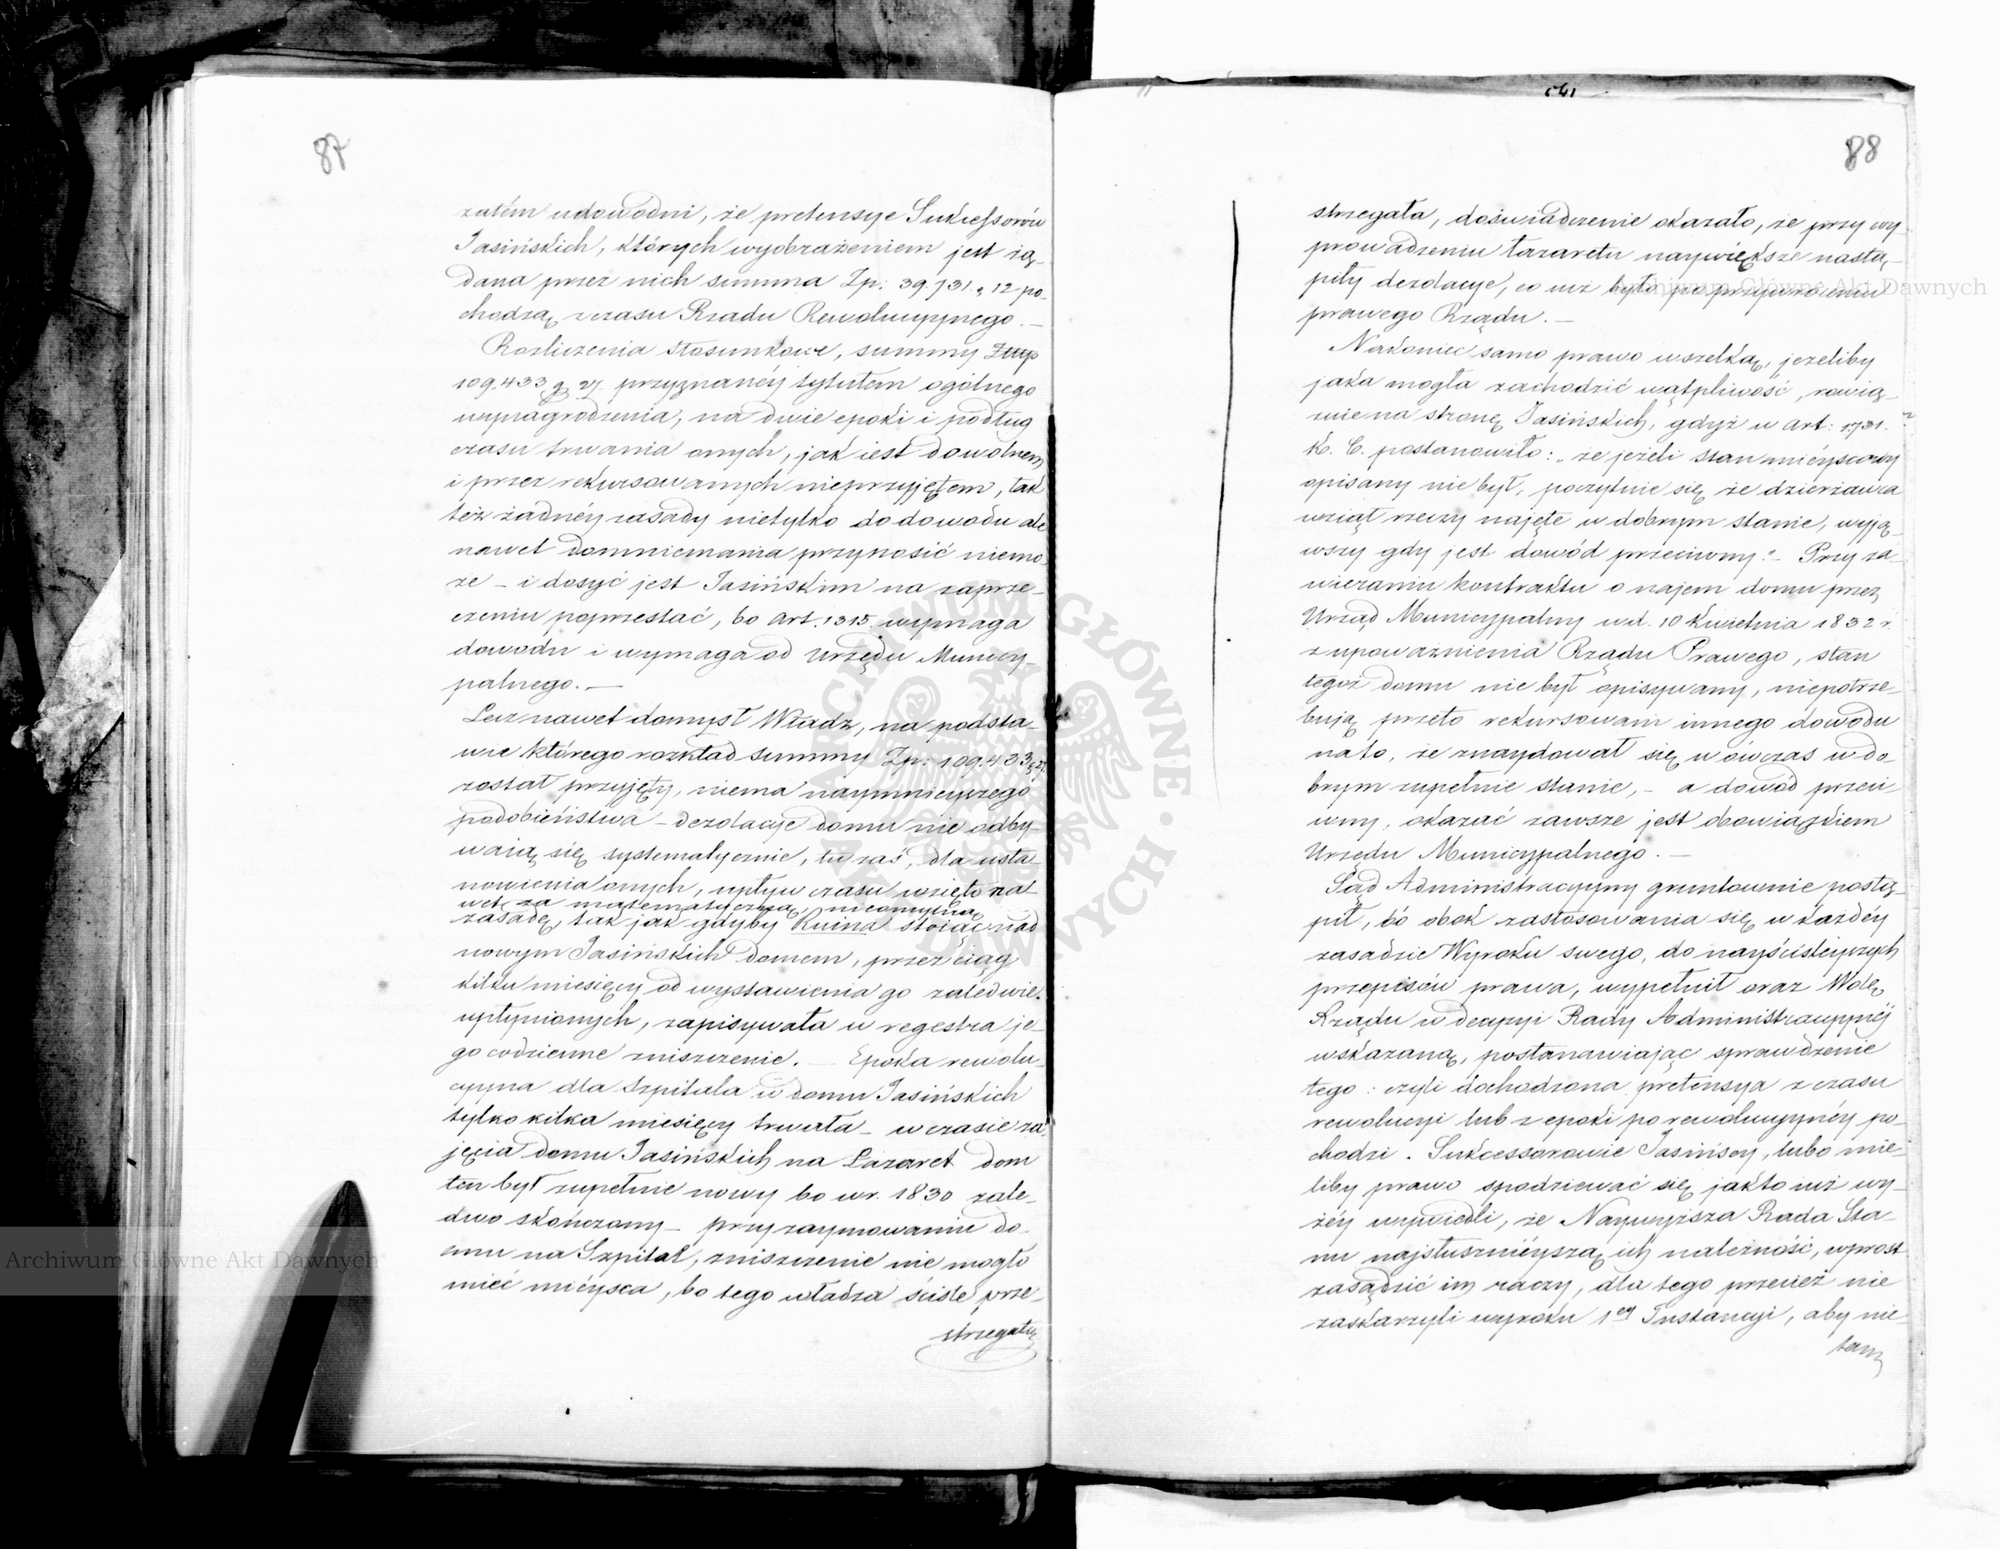 87
zatém udowodni, że pretensye Sukcessorów
Jasińskich, których wyobrażeniem jest żą-
dana przez nich summa Zp: 39,731. g 12 po-
chodzą z czasu Rządu Rewolucyjnego. —
Rozliczenia stosunkowe, summy Złtp
109.433 g 27. przyznanéy tytułem ogólnego
wynagrodzenia, na dwie epoki i podług
czasu trwania onych, jak jest dowolnem
i przez rekursowanych nieprzyjętem, tak
też żadnéy zasady nietylko do dowodu ale
nawet domniemania przynosić niemo-
że – i dosyć jest Jasińskim na zaprze-
czeniu poprzestać, bo art. 1315. wymaga
dowodu i wymaga od Urzędu Municy-
palnego. —
Lecz nawet domysł Władz, na podsta-
wie którego rozkład summy Zp: 109.433 g 27.
został przyjęty, niema naymnieyszego
podobieństwa – dezolacye domu nie odby-
waią się systematycznie, tu zaś, dla usta-
nowienia onych, upływ czasu wzięto na-
wet za matematyczną, nieomylną
zasadę, tak jak gdyby Ruina stojąc nad
nowym Jasińskich domem, przez ciąg
kilku miesięcy od wystawienia go zaledwie
upłynionych, zapisywała w regestra je-
go codzienne zniszczenie. — Epoka rewolu-
cyjna dla szpitala w domu Jasińskich
tylko kilka miesięcy trwała – w czasie za-
jęcia domu Jasińskich na Lazaret dom
ten był zupełnie nowy bo w r. 1830 zale-
dwo skończony – przy zaymowaniu do-
mu na Szpital, zniszczenie nie mogło
mieć mieysca, bo tego władza ściśle prze-
strzegała
88
strzegała, doświadczenie okazało, że przy wy-
prowadzeniu łazaretu naywiększe nastą-
piły dezolacye, co już było po przywróceniu
prawego Rządu. —
Nakoniec samo prawo wszelką, jeżeliby
jaka mogła zachodzić wątpliwość, rozwią-
zuie na stronę Jasińskich, gdyż w art: 1731.
K. C. postanowiło: „że jeżeli stan mieyscowy
opisany nie był, poczytuie się że dzierżawca
wziął rzeczy najęte w dobrym stanie, wyją-
wszy gdy jest dowód przeciwny." – Przy za-
wieraniu kontraktu o najem domu przez
Urząd Municypalny w d. 10 kwietnia 1832 r.
z upoważnienia Rządu Prawego, stan
tegoż domu nie był opisywany, niepotrze-
buią przeto rekursowani innego dowodu
na to, że znaydował się wówczas w do-
brym zupełnie stanie, – a dowód przeci-
wny, okazać zawsze jest obowiązkiem
Urzędu Municypalnego. —
Sąd Administracyyny gruntownie postą-
pił, bo obok zastosowania się w każdéy
zasadzie Wyroku swego, do nayściśleyszych
przepisów prawa, wypełnił oraz Wolę
Rządu w decyzyi Rady Administracyynéy
wskazaną, postanawiając sprawdzenie
tego: czyli dochodzona pretensya z czasu
rewolucyi lub z epoki porewolucyynéy po-
chodzi. Sukcessorowie Jasińscy, lubo mie-
liby prawo spodziewać się jak to już wy-
żéy wywiedli, że Naywyższa Rada Sta-
nu najsłusznieyszą ich należność, wprost
zasądzić im raczy, dla tego przecież nie
zaskarżyli wyroku 1ey Instancyi, aby nie-